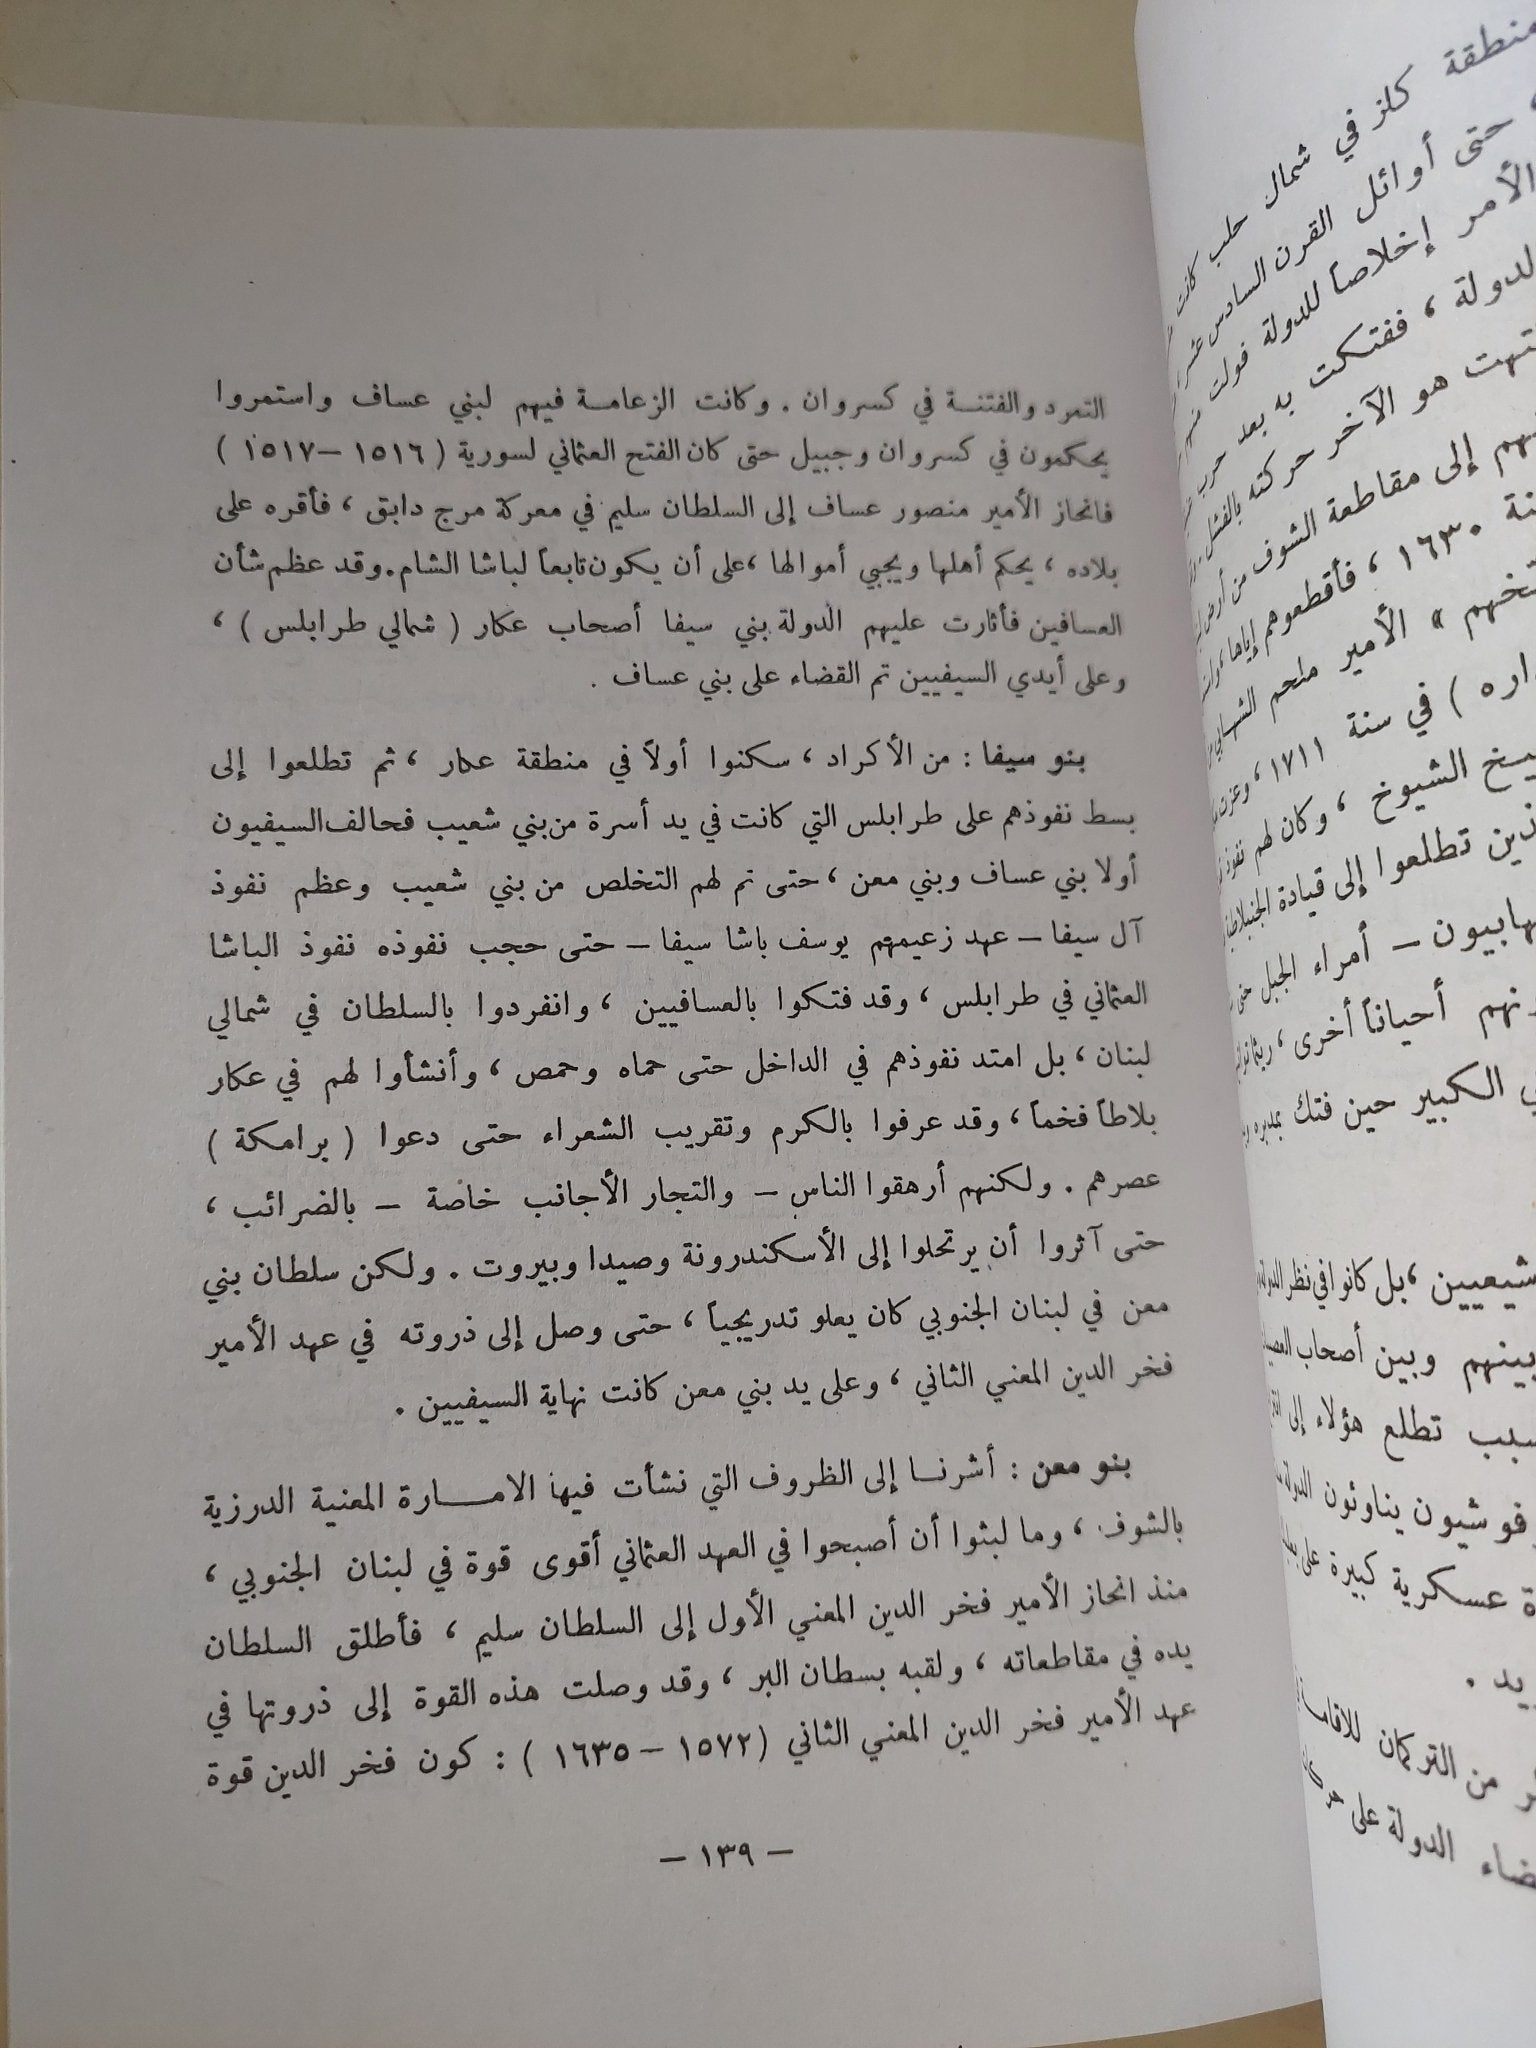 التمرد والفتنة في كسروان . وكانت الزعامة فيهم لبني عساف واستمروا
يحكمون في كسروان وجبيل حتى كان الفتح العثماني لسورية ( ١٥١٦ – ١٥١٧ )
فانحاز الأمير منصور عساف إلى السلطان سليم في معركة مرج دابق ، فأقره على
بلاده ، يحكم أهلها ويجبي أموالها ،على أن يكون تابعاً لباشا الشام. وقد عظم شأن
العسافين فأثارت عليهم الدولة بني سيفا أصحاب عكار ( شمالي طرابلس ) ،
وعلى أيدي السيفيين تم القضاء على بني عساف .
بنو سيفا : من الأكراد ، سكنوا أولاً في منطقة عكار ، ثم تطلعوا إلى
بسط نفوذهم على طرابلس التي كانت في يد أسرة من بني شعيب فحالف السيفيون
أولا بني عساف وبني معن ، حتى تم لهم التخلص من بني شعيب وعظم نفوذ
آل سيفا – عهد زعيمهم يوسف باشا سيفا – حتى حجب نفوذه نفوذ الباشا
العثماني في طرابلس ، وقد فتكوا بالعسافيين ، وانفردوا بالسلطان في شمالي
لبنان ، بل امتد نفوذهم في الداخل حتى حماه وحمص ، وأنشأوا لهم في عكار
بلاطاً فخماً ، وقد عرفوا بالكرم وتقريب الشعراء حتى دعوا ( برامكة )
عصرهم . ولكنهم أرهقوا الناس – والتجار الأجانب خاصة – بالضرائب ،
حتى آثروا أن يرتحلوا إلى الأسكندرونة وصيدا وبيروت . ولكن سلطان بني
معن في لبنان الجنوبي كان يعلو تدريجياً ، حتى وصل إلى ذروته في عهد الأمير
فخر الدين المعني الثاني ، وعلى يد بني معن كانت نهاية السيفيين .
بنو معن : أشرنا إلى الظروف التي نشأت فيها الامارة المعنية الدرزية
بالشوف ، وما لبثوا أن أصبحوا في العهد العثماني أقوى قوة في لبنان الجنوبي ،
منذ انحاز الأمير فخر الدين المعني الأول إلى السلطان سليم ، فأطلق السلطان
يده في مقاطعاته ، ولقبه بسطان البر ، وقد وصلت هذه القوة إلى ذروتها في
عهد الأمير فخر الدين المعني الثاني (١٥٧٢ – ١٦٣٥ ) : كون فخر الدين قوة
– ١٣٩ –
منطقة كلز في شمال حلب كانت
حتى أوائل القرن السادس عشر
الأمر إخلاصاً للدولة فولت
، ففتكت به بعد حرب
هو الآخر حركته بالفشل
إلى مقاطعة الشوف من أرض
١٦٣٠ ، فأقطعوهم إياها
» الأمير ملحم الشهابي
) في سنة ١٧١١ ، وعزت
الشيوخ ، وكان لهم نفوذ
تطلعوا إلى قيادة الجنبلاطية
– أمراء الجبل حتى
أحياناً أخرى ، ريثما
الكبير حين فتك بمديره
، بل كانوا في نظر الدولة
بينهم وبين أصحاب
تطلع هؤلاء إلى
يناوئون الدولة
عسكرية كبيرة على
من التركمان للاقامة
الدولة على